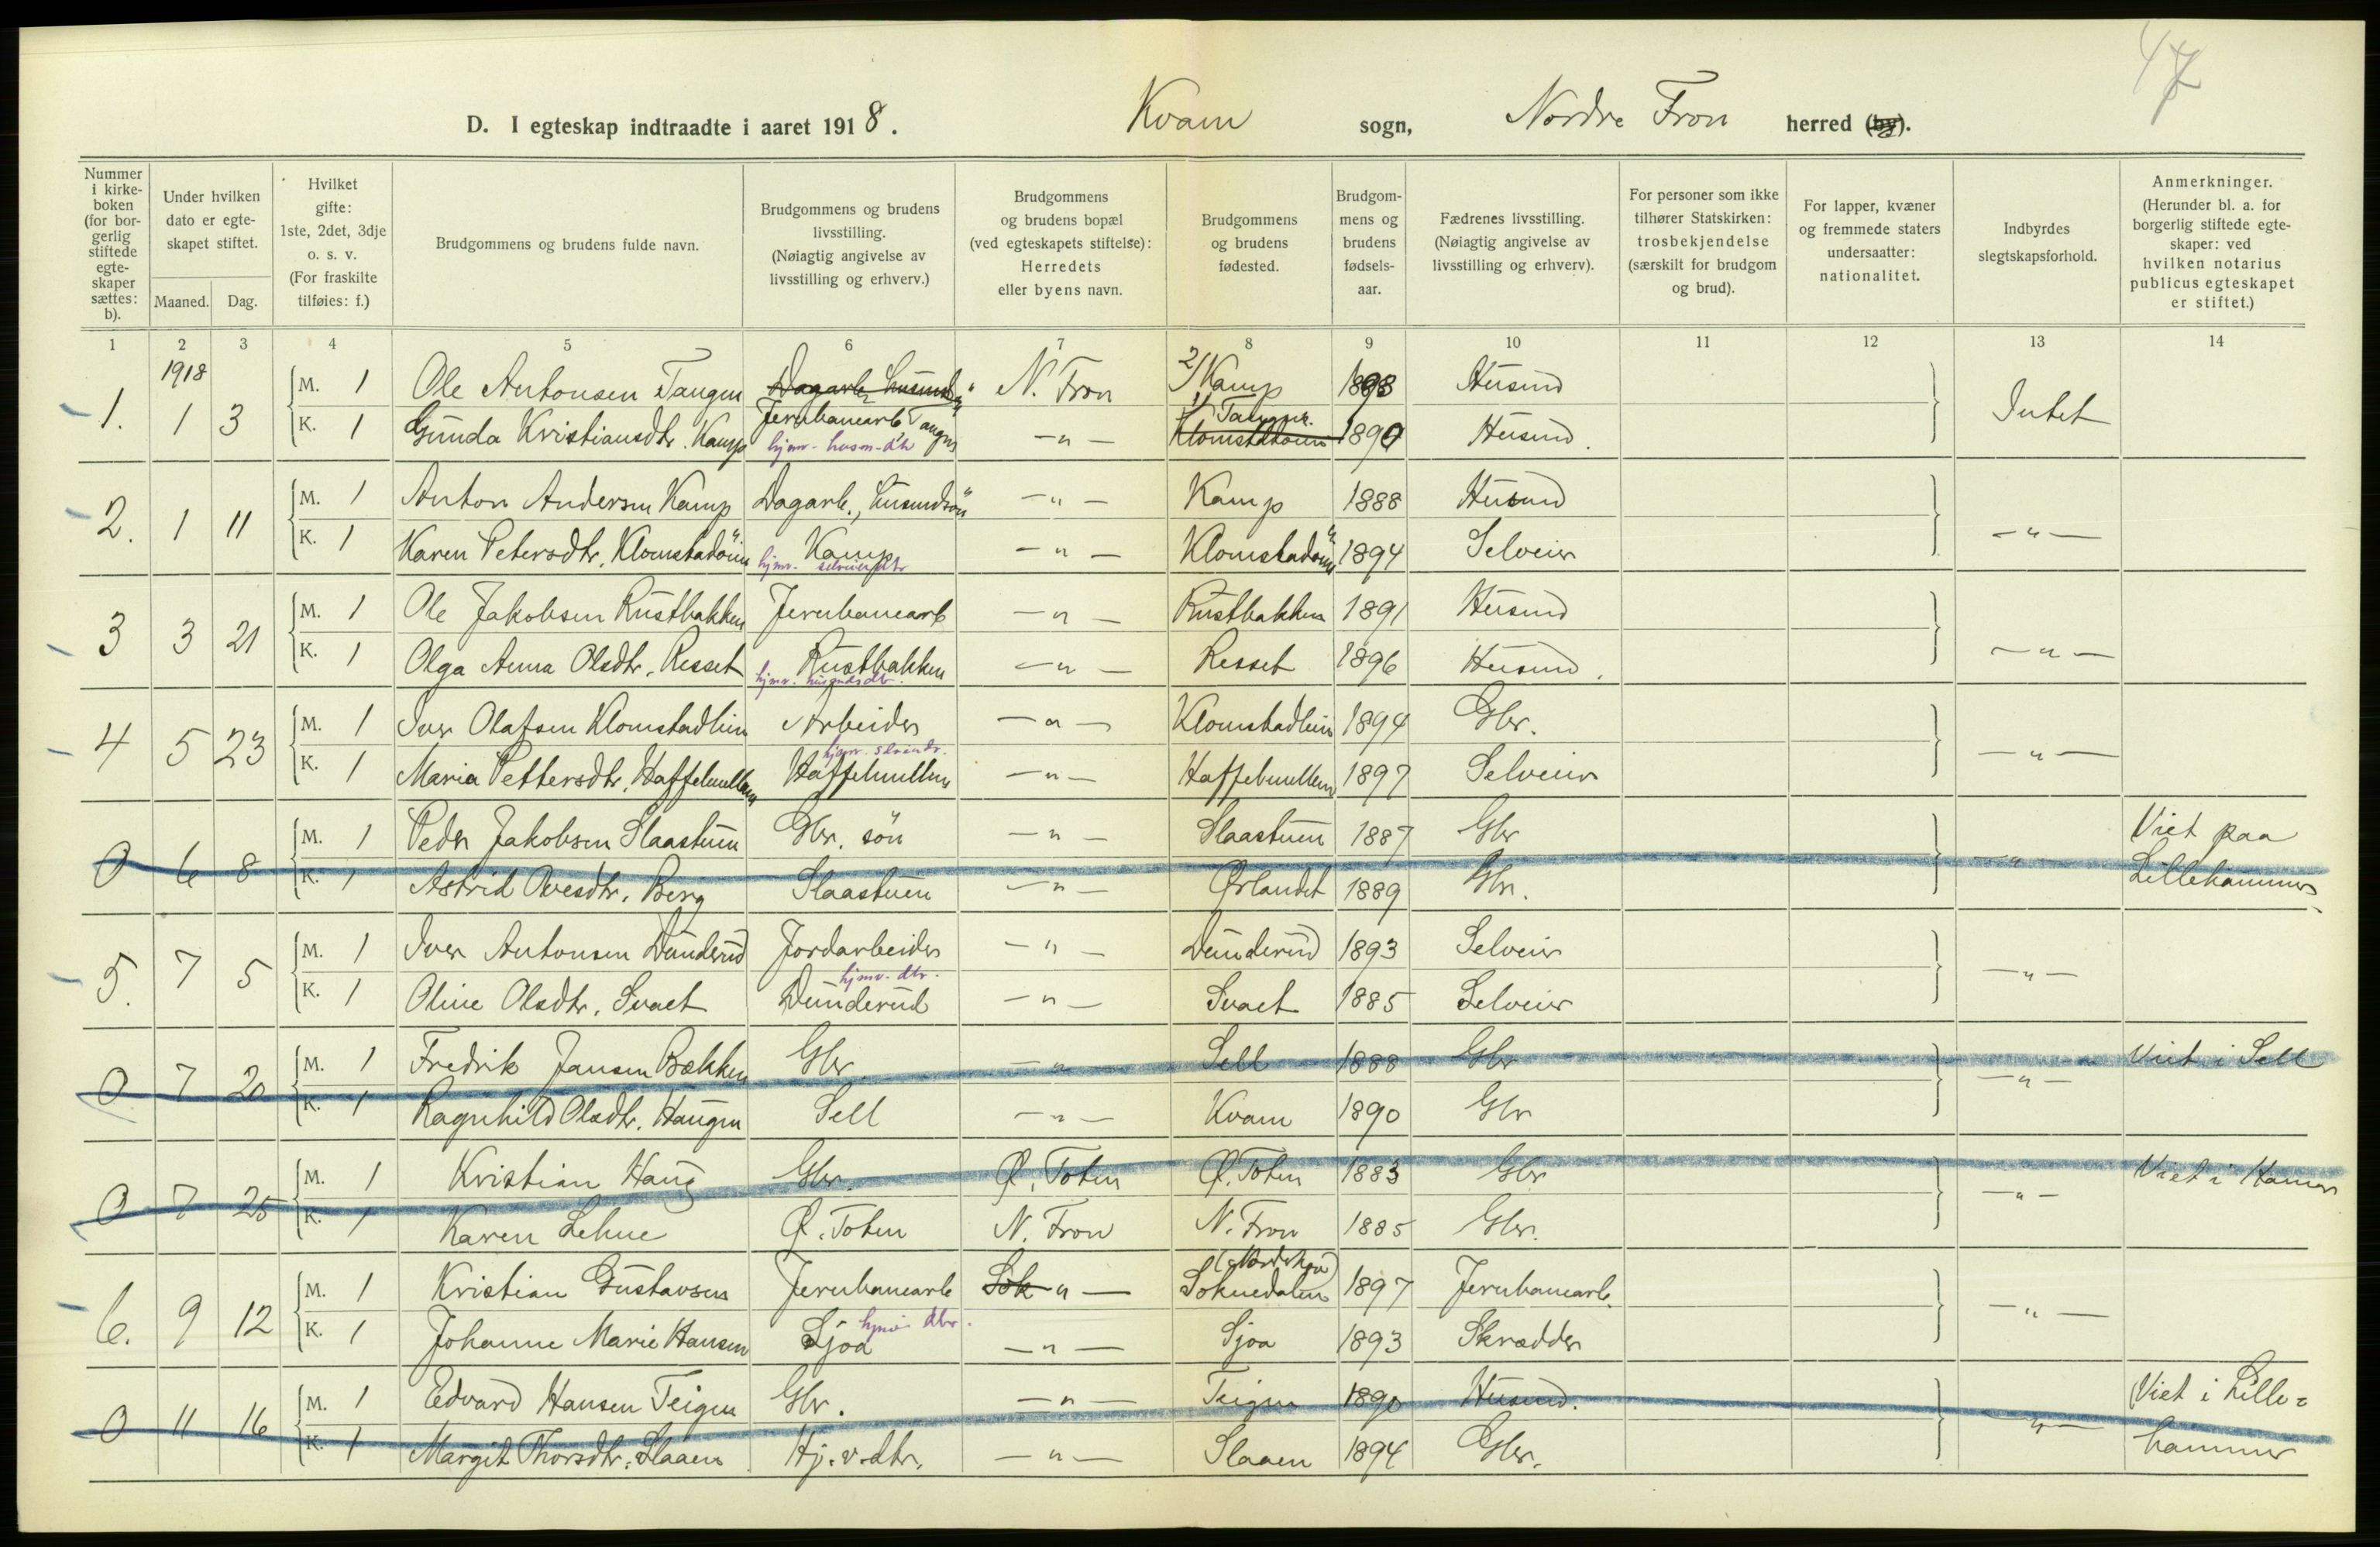 47
D. I egteskap indtraadte i aaret 1918. Kvam sogn, Nordre Fron herred (by).
Nummer i kirkeboken (for borgerlig stiftede egteskaper sættes: b).
Under hvilken dato er egteskapet stiftet.
Maaned. Dag.
Hvilket gifte: 1ste, 2det, 3dje o. s. v. (For fraskilte tilføies: f.)
Brudgommens og brudens fulde navn.
Brudgommens og brudens livsstilling. (Nøiagtig angivelse av livsstilling og erhverv.)
Brudgommens og brudens bopæl (ved egteskapets stiftelse): Herredets eller byens navn.
Brudgommens og brudens fødested.
Brudgommens og brudens fødselsaar.
Fædrenes livsstilling. (Nøiagtig angivelse av livsstilling og erhverv).
For personer som ikke tilhører Statskirken: trosbekjendelse (særskilt for brudgom og brud).
For lapper, kvæner og fremmede staters undersaatter: nationalitet.
Indbyrdes slegtskapsforhold.
Anmerkninger. (Herunder bl. a. for borgerlig stiftede egteskaper: ved hvilken notarius publicus egteskapet er stiftet.)
1 2 3 4 5 6 7 8 9 10 11 12 13 14
1918
1. 1 3 M. 1 Ole Antonsen Tangen Dagarb. husmds N. Fron 2/ Kamp 1893 Husmd Intet
Jernbanearb Tangen 1/ Tangen
K. 1 Gunda Kristiansdtr. Kamp hjmv. husm-dtr — " — Klomstadøien 1890 Husmd.
2. 1 11 M. 1 Anton Andersen Kamp Dagarb., husmdsön — " — Kamp 1888 Husmd — " —
K. 1 Karen Petersdtr. Klomstadöien Kamp — " — Klomstadöien 1894 Selveier
hjmv. selveierdtr
3 3 21 M. 1 Ole Jakobsen Rustbakken Jernbanearb — " — Rustbakken 1891 Husmd — " —
K. 1 Olga Anna Olsdtr. Resset Rustbakken — " — Resset 1896 Husmd.
hjmv. husmdsdtr.
4 5 23 M. 1 Iver Olafsen Klomstadlien Arbeider — " — Klomstadlien 1894 Gbr. — " —
K. 1 Maria Pettersdtr. Haffelmellen Haffelmellen — " — Haffelmellen 1897 Selveier
0 6 8 M. 1 Peder Jakobsen Slaastuen Gbr. sön — " — Slaastuen 1887 Gbr — " — Viet paa
K. 1 Astrid Ovesdtr. Berg Slaastuen — " — Ørlandet 1889 Gbr. Lillehammer
5. 7 5 M. 1 Iver Antonsen Dunderud Jordarbeider — " — Dunderud 1893 Selveier — " —
hjmv. dtr.
K. 1 Oline Olsdtr. Svaet Dunderud — " — Svaet 1885 Selveier
0 7 20 M. 1 Fredrik Jansen Bækken Gbr — " — Sell 1888 Gbr — " — Viet i Sell
K. 1 Ragnhild Olsdtr. Haugen Sell — " — Kvam 1890 Gbr
0 7 25 M. 1 Kristian Haug Gbr. Ø. Toten Ø. Toten 1883 Gbr — " — Viet i Hamar
K. 1 Karen Lehne Ø. Toten N. Fron N. Fron 1885 Gbr.
6. 9 12 M. 1 Kristian Gustavsen Jernbanearb Sok " — Soknedalen 1897 Jernbanearb. — " —
hjmv. dtr.
K. 1 Johanne Marie Hansen Sjoa — " — Sjoa 1893 Skrædder
0 11 16 M. 1 Edvard Hansen Teigen Gbr. — " — Teigen 1890 Husmd. — " — Viet i Lille=
K. 1 Margit Thorsdtr. Slaaen Hj.v.dtr. — " — Slaaen 1894 Gbr. hammer